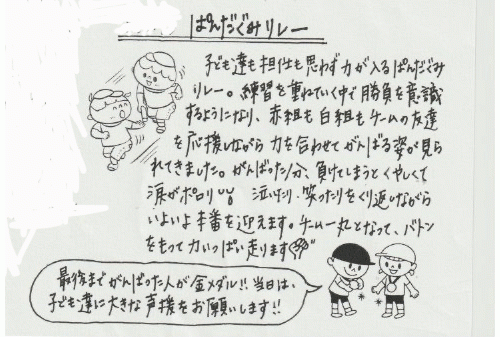 ぱんだぐみリレー
子ども達も担任も思わず力が入るぱんだぐみ
リレー。練習を重ねていく中で勝負を意識
するようになり、赤組も白組もチームの友達
を応援しながら力を合わせてがんばる姿が見ら
れてきました。がんばった分、負けてしまうとくやしくて
涙がポロリ 泣いたり、笑ったりをくり返しながら
いよいよ本番を迎えます。チーム一丸となって、バトン
をもって力いっぱい走ります
最後までがんばった人が金メダル!!当日は、
子ども達に大きな声援をお願いします!!